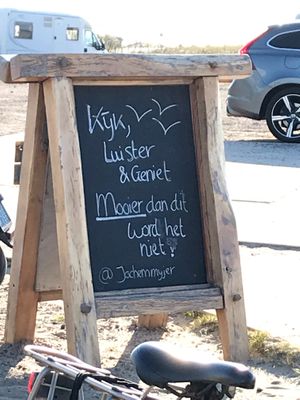 Kijk,
Luister
& Geniet
Mooier dan dit
word het
niet!
@ Jochemmyjer